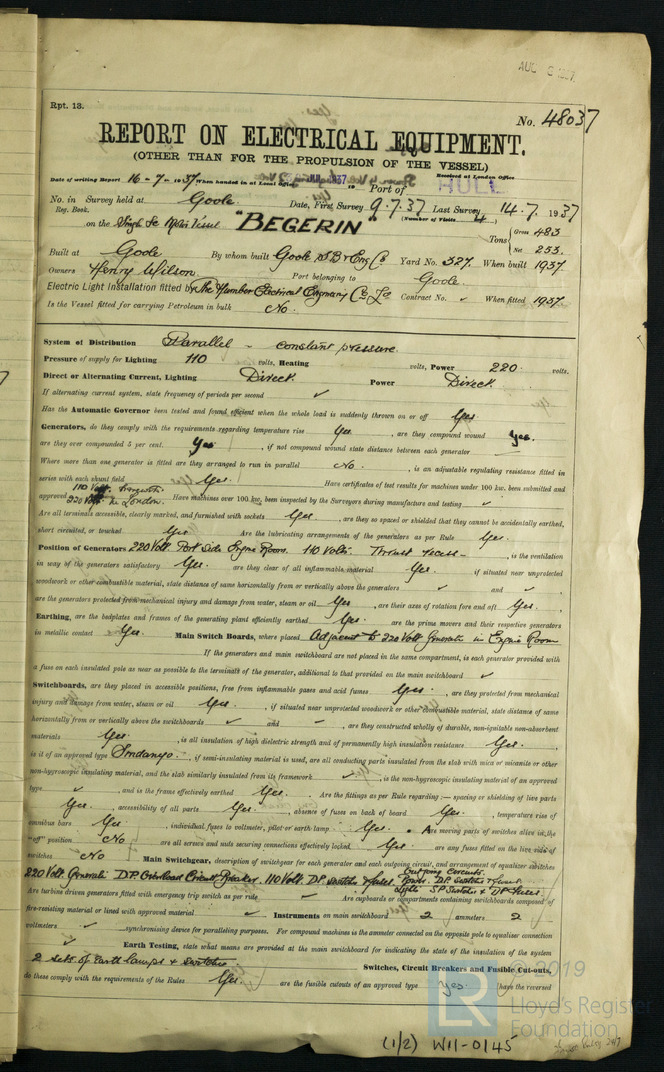 AUG 1937
Rpt. 13.
No. 48037
REPORT ON ELECTRICAL EQUIPMENT.
(OTHER THAN FOR THE PROPULSION OF THE VESSEL)
Date of writing Report 16-7-1937 When handed in at Local Office JUL 1937 Port of HULL Received at London Office
No. in Survey held at Goole Date, First Survey 9.7.37 Last Survey 14.7.1937
Reg. Book. (Number of Visits 4)
on the Single Sc Motor Vessel "BEGERIN" Tons Gross 483 Net 253.
Built at Goole By whom built Goole S.B. & Eng Co Yard No. 327. When built 1937.
Owners Henry Wilson. Port belonging to Goole.
Electric Light Installation fitted by The Humber Electrical Engineering Co. Ld Contract No. ✓ When fitted 1937.
Is the Vessel fitted for carrying Petroleum in bulk No.
System of Distribution Parallel - constant pressure.
Pressure of supply for Lighting 110 volts, Heating volts, Power 220 volts.
Direct or Alternating Current, Lighting Direct. Power Direct.
If alternating current system, state frequency of periods per second ✓
Has the Automatic Governor been tested and found efficient when the whole load is suddenly thrown on or off Yes.
Generators, do they comply with the requirements regarding temperature rise Yes, are they compound wound Yes.
are they over compounded 5 per cent. Yes, if not compound wound state distance between each generator
Where more than one generator is fitted are they arranged to run in parallel No., is an adjustable regulating resistance fitted in
series with each shunt field Yes. Have certificates of test results for machines under 100 kw. been submitted and
approved 110 Volt 220 Volt in London. Have machines over 100 kw. been inspected by the Surveyors during manufacture and testing ✓
Are all terminals accessible, clearly marked, and furnished with sockets Yes., are they so spaced or shielded that they cannot be accidentally earthed,
short circuited, or touched Yes Are the lubricating arrangements of the generators as per Rule Yes.
Position of Generators 220 Volt Port Side Engine Room. 110 Volts Thrust recess -, is the ventilation
in way of the generators satisfactory Yes. are they clear of all inflammable material Yes. if situated near unprotected
woodwork or other combustible material, state distance of same horizontally from or vertically above the generators ✓ and ✓,
are the generators protected from mechanical injury and damage from water, steam or oil Yes, are their axes of rotation fore and aft Yes.
Earthing, are the bedplates and frames of the generating plant efficiently earthed Yes. are the prime movers and their respective generators
in metallic contact Yes. Main Switch Boards, where placed Adjacent to 220 Volt Generator in Engine Room
If the generators and main switchboard are not placed in the same compartment, is each generator provided with
a fuse on each insulated pole as near as possible to the terminals of the generator, additional to that provided on the main switchboard ✓
Switchboards, are they placed in accessible positions, free from inflammable gases and acid fumes Yes., are they protected from mechanical
injury and damage from water, steam or oil Yes., if situated near unprotected woodwork or other combustible material, state distance of same
horizontally from or vertically above the switchboards ✓ and ✓, are they constructed wholly of durable, non-ignitable non-absorbent
materials Yes., is all insulation of high dielectric strength and of permanently high insulation resistance Yes.,
is it of an approved type Sindanyo., if semi-insulating material is used, are all conducting parts insulated from the slab with mica or micanite or other
non-hygroscopic insulating material, and the slab similarly insulated from its framework ✓, is the non-hygroscopic insulating material of an approved
type ✓, and is the frame effectively earthed Yes. Are the fittings as per Rule regarding:— spacing or shielding of live parts
Yes., accessibility of all parts Yes., absence of fuses on back of board Yes., temperature rise of
omnibus bars Yes., individual fuses to voltmeter, pilot or earth lamp Yes. Are moving parts of switches alive in the
"off" position No are all screws and nuts securing connections effectively locked Yes. are any fuses fitted on the live side of
switches No Main Switchgear, description of switchgear for each generator and each outgoing circuit, and arrangement of equalizer switches
220 Volt Generator D.P. Overload Circuit Breaker. 110 Volt D.P. switches & fuses. Outgoing circuits. Power. D.P. Switches & fuses. Lights S.P. Switches & D.P. fuses.
Are turbine driven generators fitted with emergency trip switch as per rule ✓ Are cupboards or compartments containing switchboards composed of
fire-resisting material or lined with approved material ✓ Instruments on main switchboard 2 ammeters 2
voltmeters ✓ synchronising device for paralleling purposes. For compound machines is the ammeter connected on the opposite pole to equalizer connection
✓ Earth Testing, state what means are provided at the main switchboard for indicating the state of the insulation of the system
2 sets of Earth Lamps & switches Switches, Circuit Breakers and Fusible Cut-outs,
do these comply with the requirements of the Rules Yes. are the fusible cutouts of an approved type Yes. have the reversed
© 2019
LR
Lloyd's Register
Foundation
(1/2) W11-0145